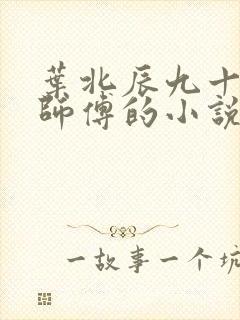 葉北辰九十
師傅的小說
一故事一个坑